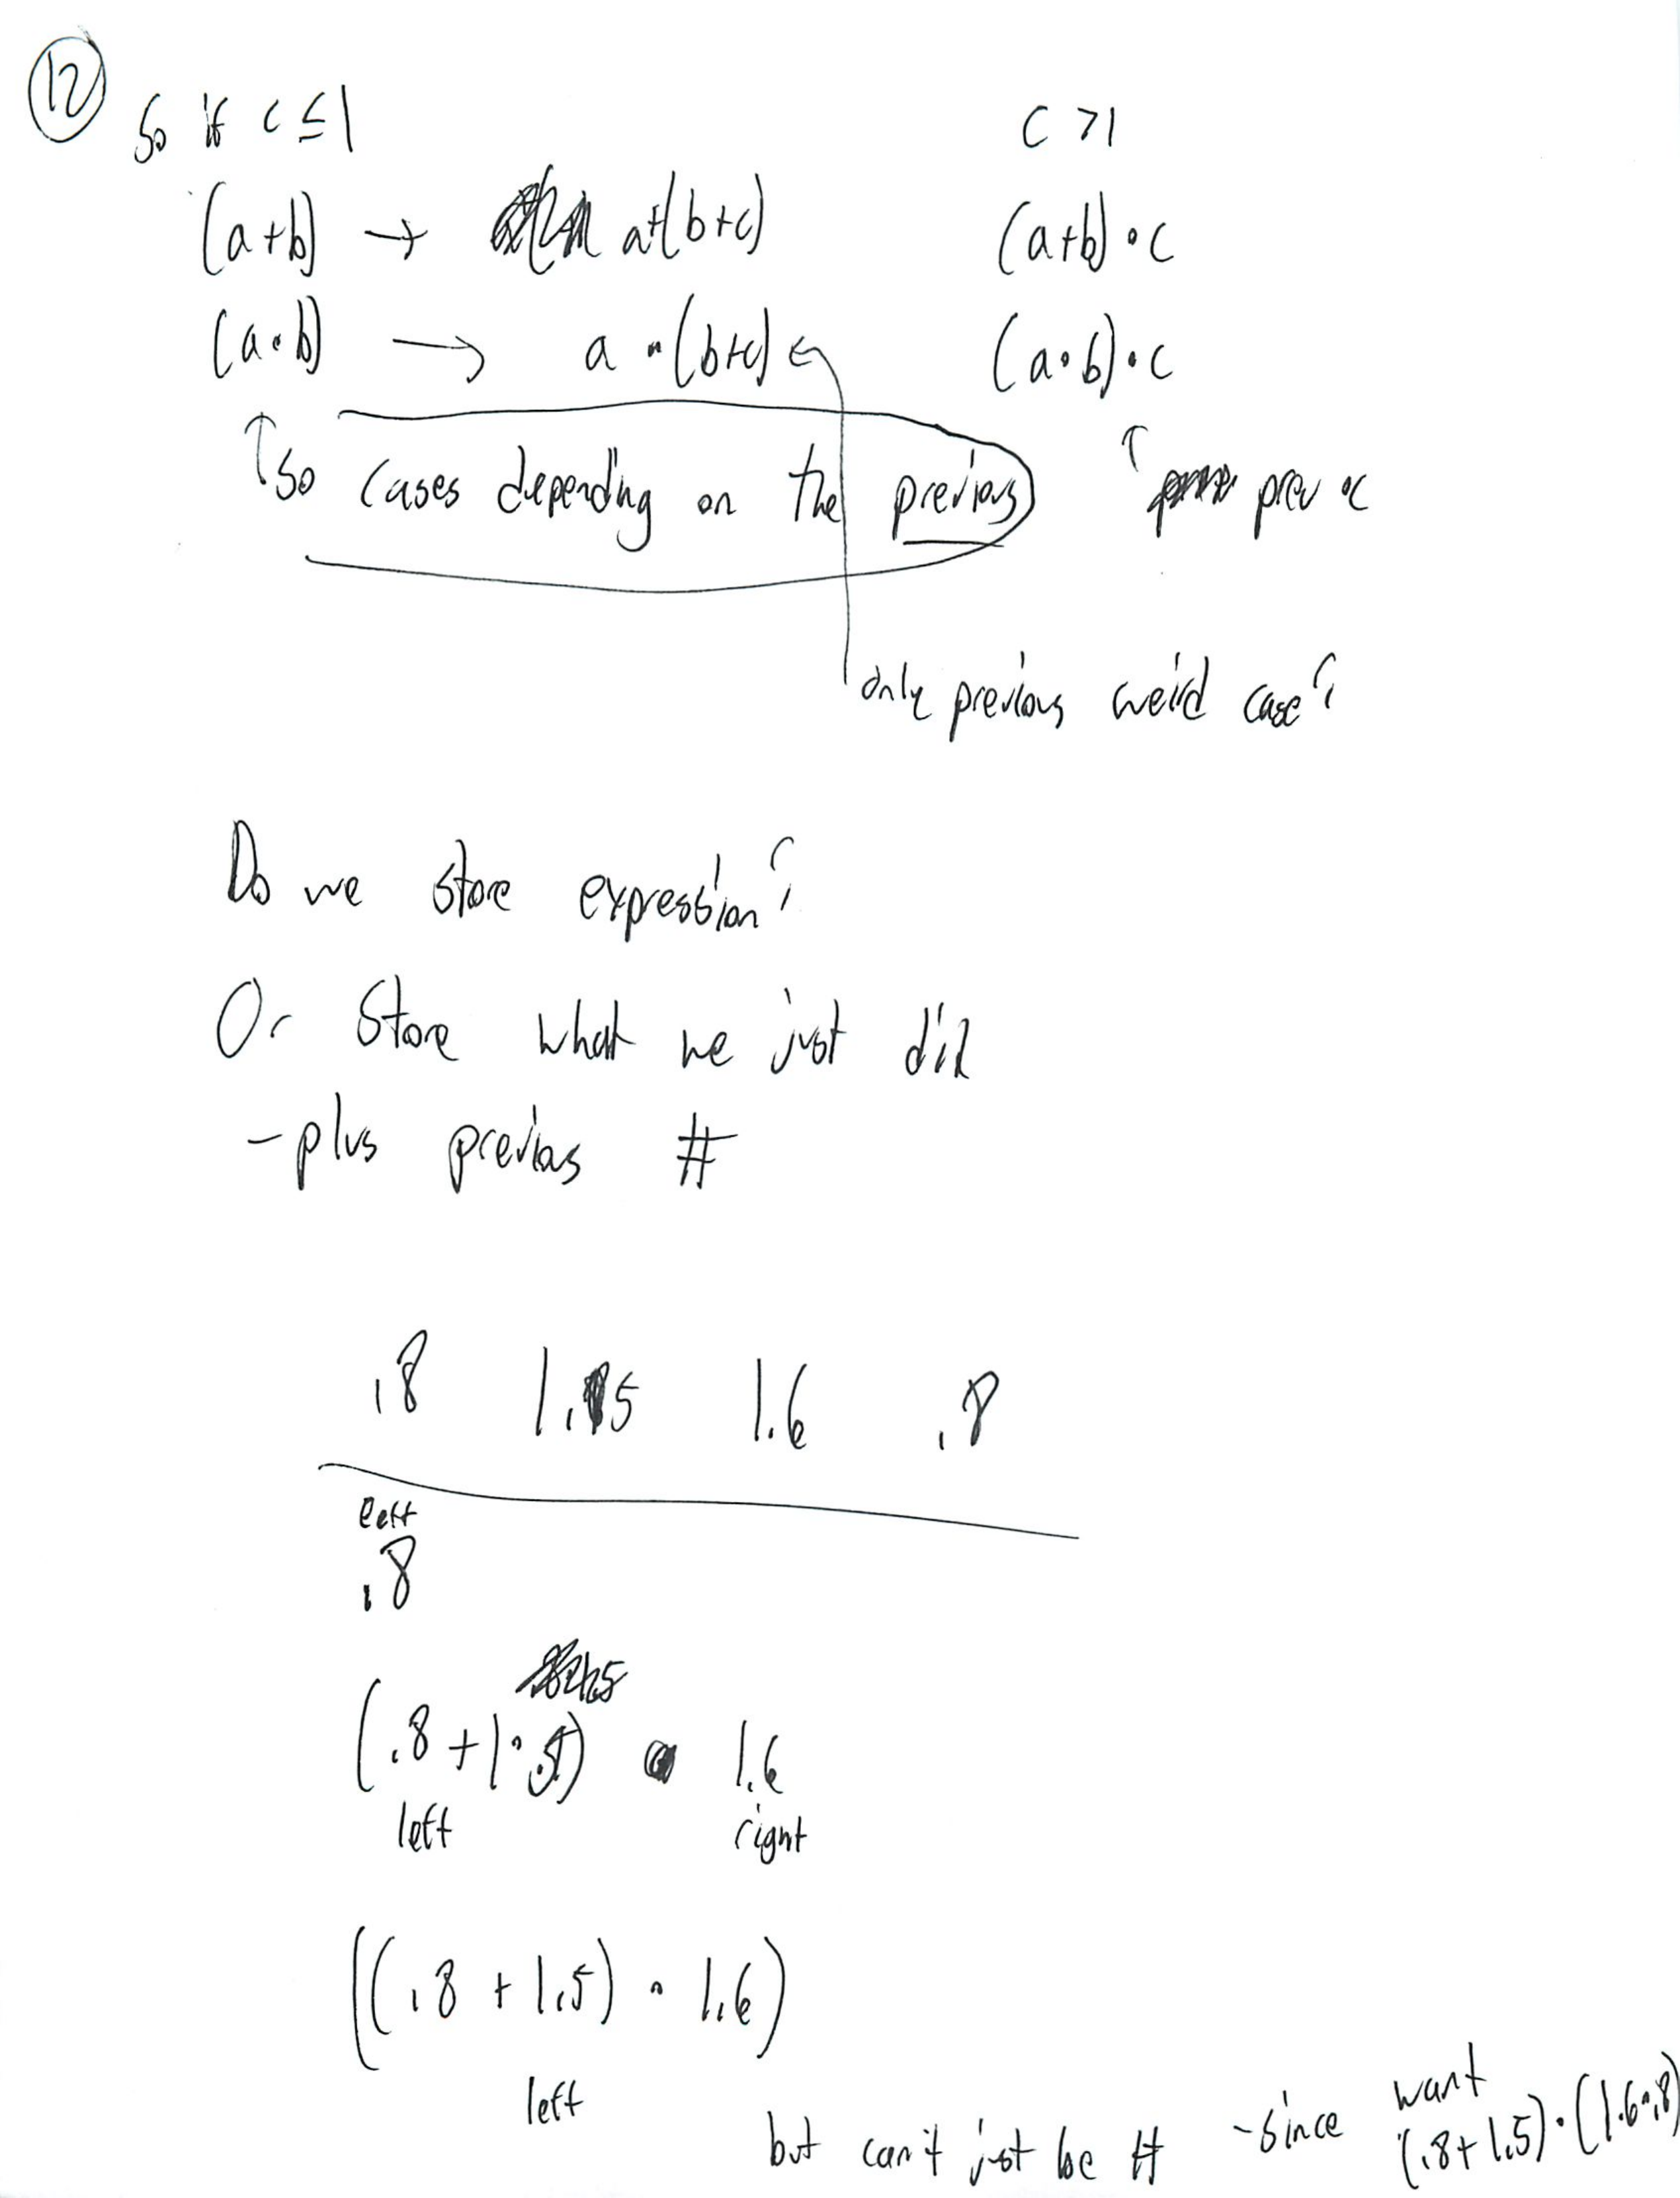 12
So if c ≤ 1 c > 1
(a+b) → a+(b+c) (a+b)•c
(a•b) → a•(b+c) (a•b)•c
↑so cases depending on the previous ↑ prev •c
only previous weird case?
Do we store expression?
Or store what we just did
- plus previous #
.8 1.5 1.6 .8
left
.8
(.8+1.5) • 1.6
left right
((.8 + 1.5) • 1.6)
left
but can't just be # - since want
(.8+1.5)•(1.6•.8)